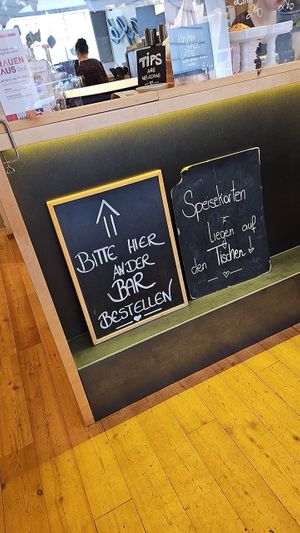 TIPS
ARE
WELCOME
BITTE HIER
AN DER
BAR
BESTELLEN
Speisekarten
liegen auf
den Tischen